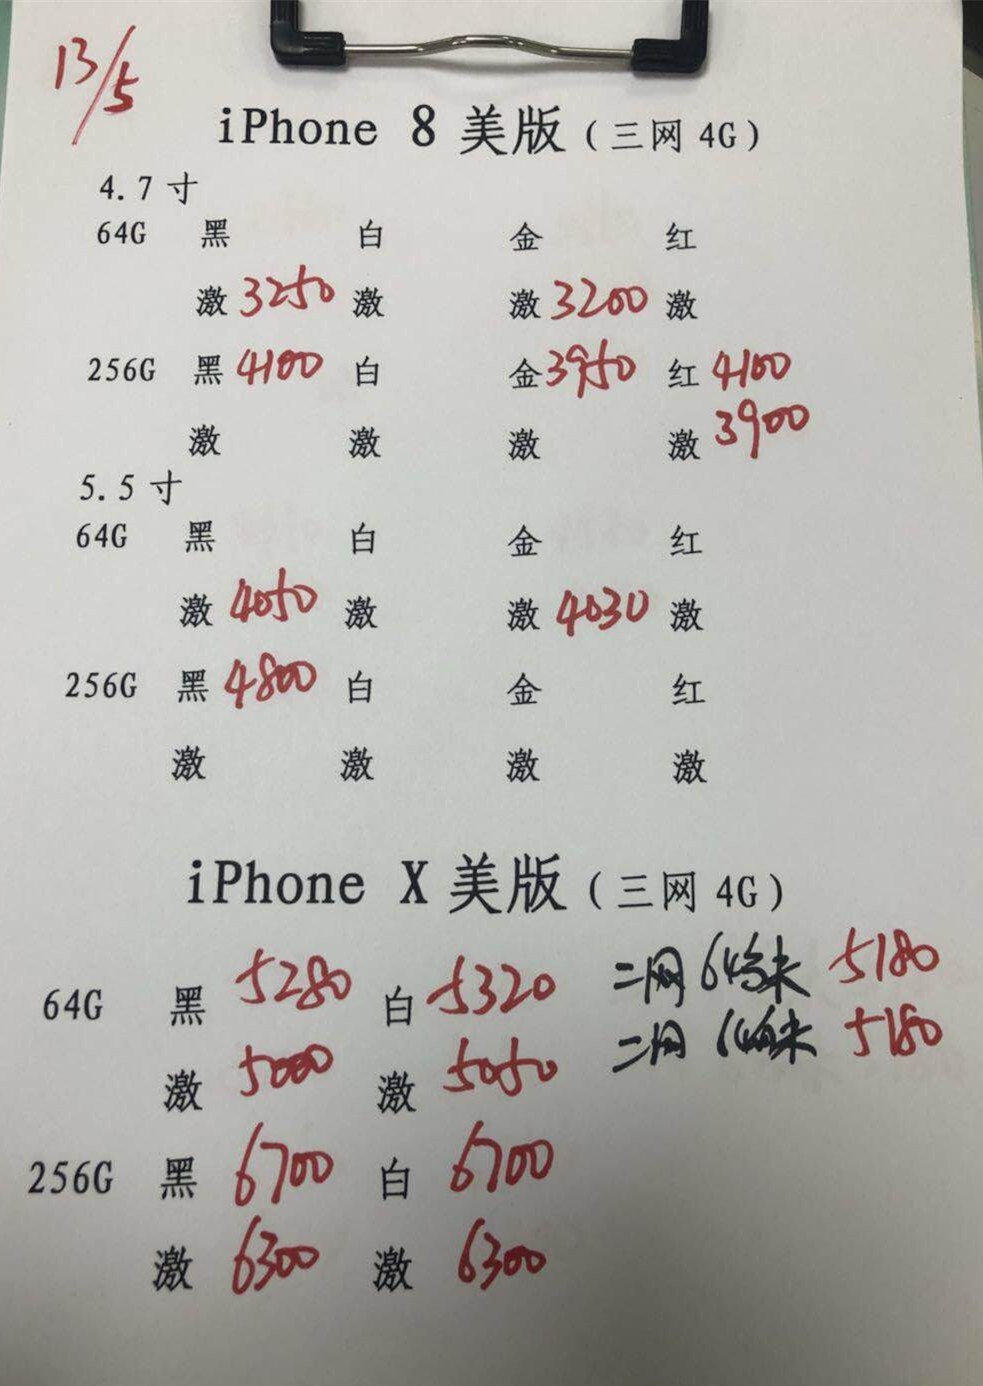 13/5
iPhone 8 美版（三网 4G）
4.7 寸
64G 黑 白 金 红
激 3250 激 激 3200 激
256G 黑 4100 白 金 3950 红 4100
激 激 激 激 3900
5.5 寸
64G 黑 白 金 红
激 4050 激 激 4030 激
256G 黑 4800 白 金 红
激 激 激 激
iPhone X 美版（三网 4G）
64G 黑 5280 白 5320 二网 64 未 5180
激 5000 激 5050 二网 64 未 5180
256G 黑 6700 白 6700
激 6300 激 6300